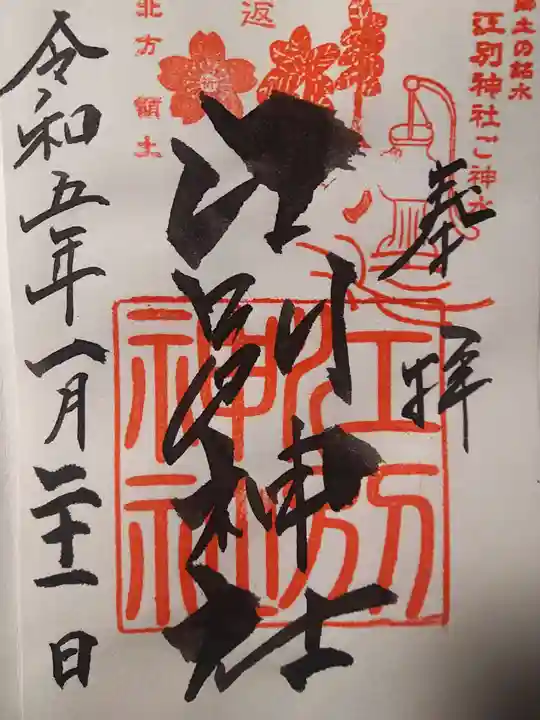 郷土の銘水
江別神社ご神水
奉拝
返
北方領土
江別神社
江別神社
令和五年一月二十一日